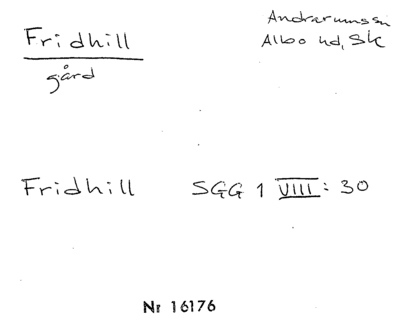 Fridhill
gård
Andrarumssn
Albo hd, Sk
Fridhill SGG 1 VIII: 30
Nr 16176